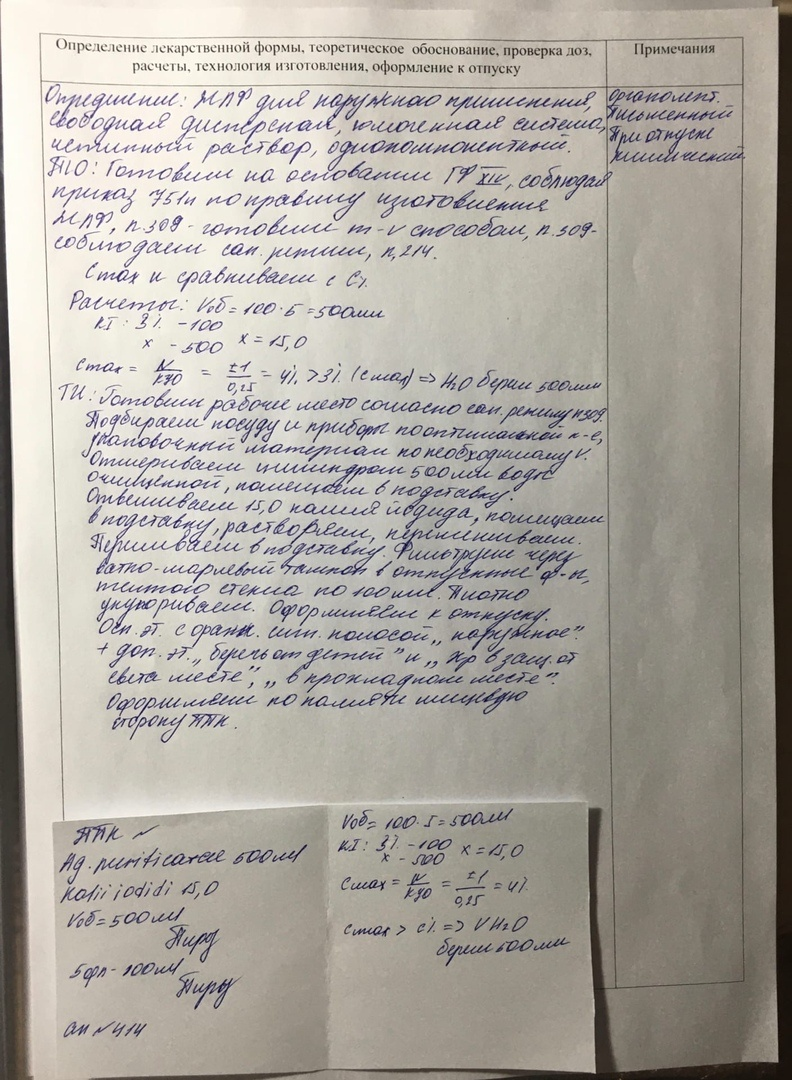 Определение лекарственной формы, теоретическое обоснование, проверка доз,
расчеты, технология изготовления, оформление к отпуску
Примечания
Определение: ЖЛФ для наружного применения,
свободная дисперсная, гомогенная система,
истинный раствор, однокомпонентный.
органолепт.
Письменный
При отпуске
химический
ТО: Готовим на основании ГФ XIV, соблюдая
приказ 751н по правилу изготовления
ЖЛФ, п.309 - готовим m-v способом, п.309-
соблюдаем сан. режим, п,214.
Cmax и сравниваем с C%.
Расчеты: Vоб = 100·5 = 500мл
KI: 3% - 100
x - 500 x = 15,0
Cmax = N/КУО = ±1/0,25 = 4% > 3% (Cmax) => H2O берем 500мл
ТИ: Готовим рабочее место согласно сан. режиму п309.
Подбираем посуду и приборы по оптимальной
упаковочный материал по необходимому V.
Отмериваем цилиндром 500мл воды
очищенной, помещаем в подставку.
Отвешиваем 15,0 калия йодида, помещаем
в подставку, растворяем, перемешиваем.
Переливаем в подставку. Фильтруем через
ватно-марлевый тампон в отпускные ф-ы,
желтого стекла по 100мл. Плотно
укупориваем. Оформляем к отпуску.
Осн. эт. с оранж. сиг. полосой „наружное".
+ доп. эт. „беречь от детей" и „хр в защ. от
света месте", „в прохладном месте".
Оформляем по памяти лицевую
сторону ППК.
ППК №
Aq. purificatae 500мл
Kalii iodidi 15,0
Vоб = 500мл
5фл - 100мл
ан №414
Vоб = 100·5 = 500мл
KI: 3% - 100
x - 500 x = 15,0
Cmax = N/КУО = ±1/0,25 = 4%
Cmax > C% => V H2O
берем 500мл